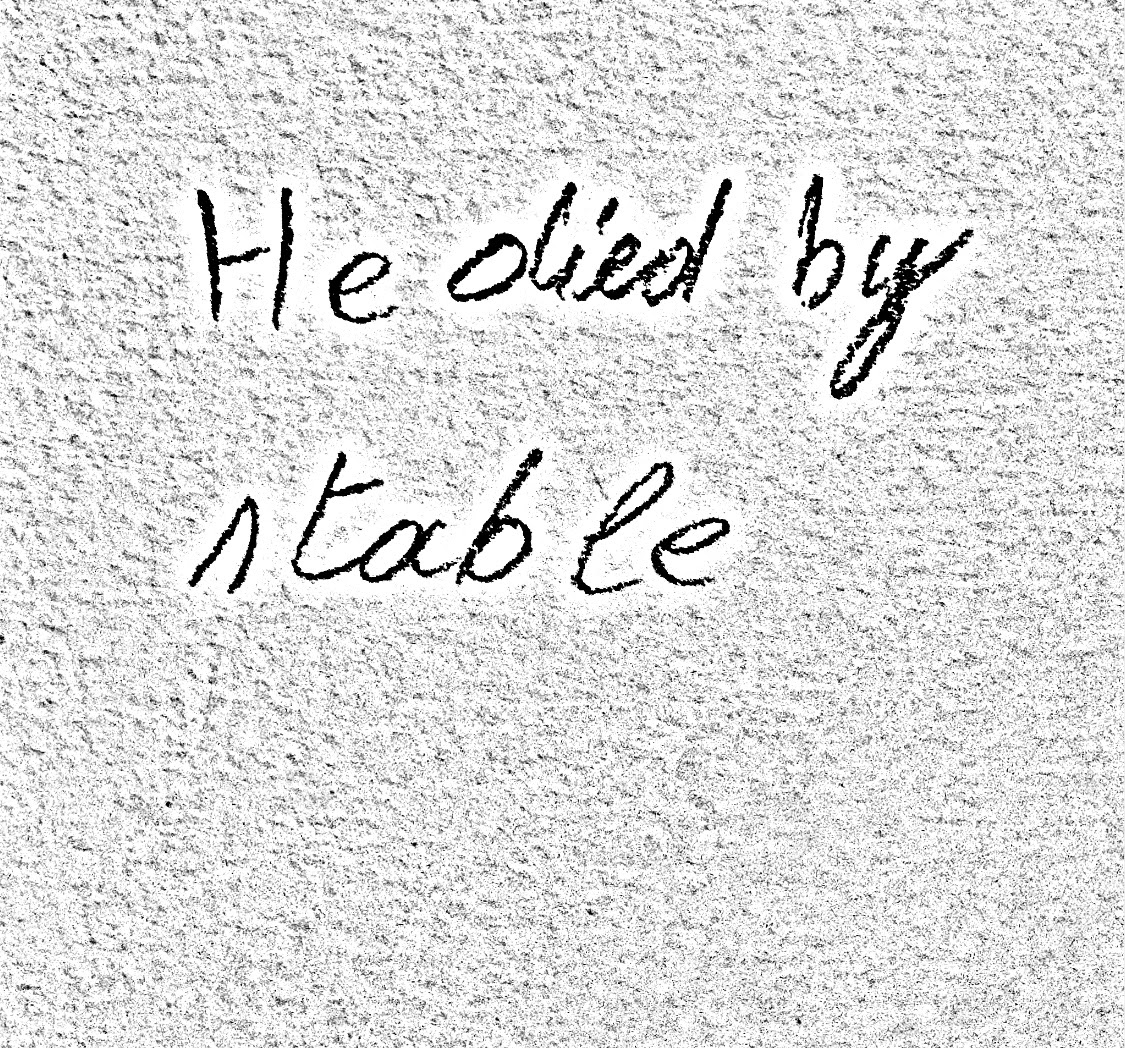 He died by
stable